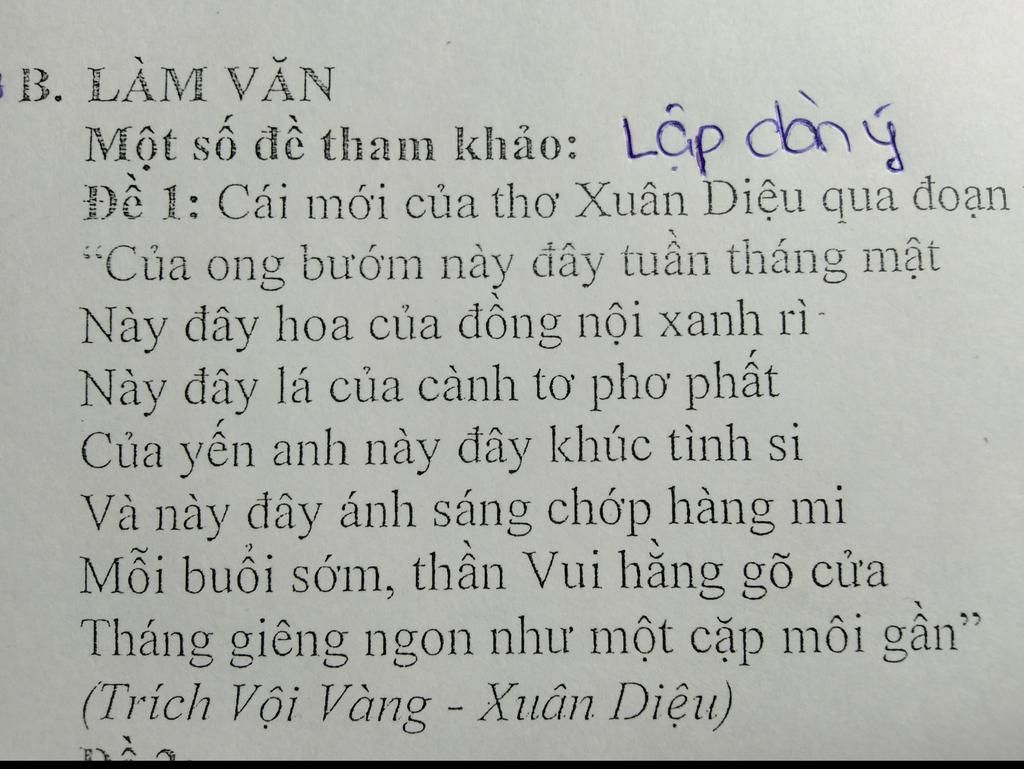 B. LÀM VĂN
Một số đề tham khảo: Lập dàn ý
Đề 1: Cái mới của thơ Xuân Diệu qua đoạn
“Của ong bướm này đây tuần tháng mật
Này đây hoa của đồng nội xanh rì
Này đây lá của cành tơ phơ phất
Của yến anh này đây khúc tình si
Và này đây ánh sáng chớp hàng mi
Mỗi buổi sớm, thần Vui hằng gõ cửa
Tháng giêng ngon như một cặp môi gần”
(Trích Vội Vàng - Xuân Diệu)